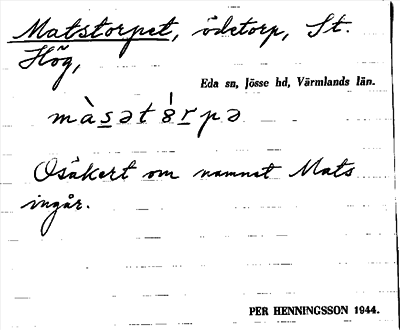 Matstorpet, ödetorp, St.
Hög,
Eda sn, Jösse hd, Värmlands län.
màsət8́rpə
Osäkert om namnet Mats
ingår.
PER HENNINGSSON 1944.